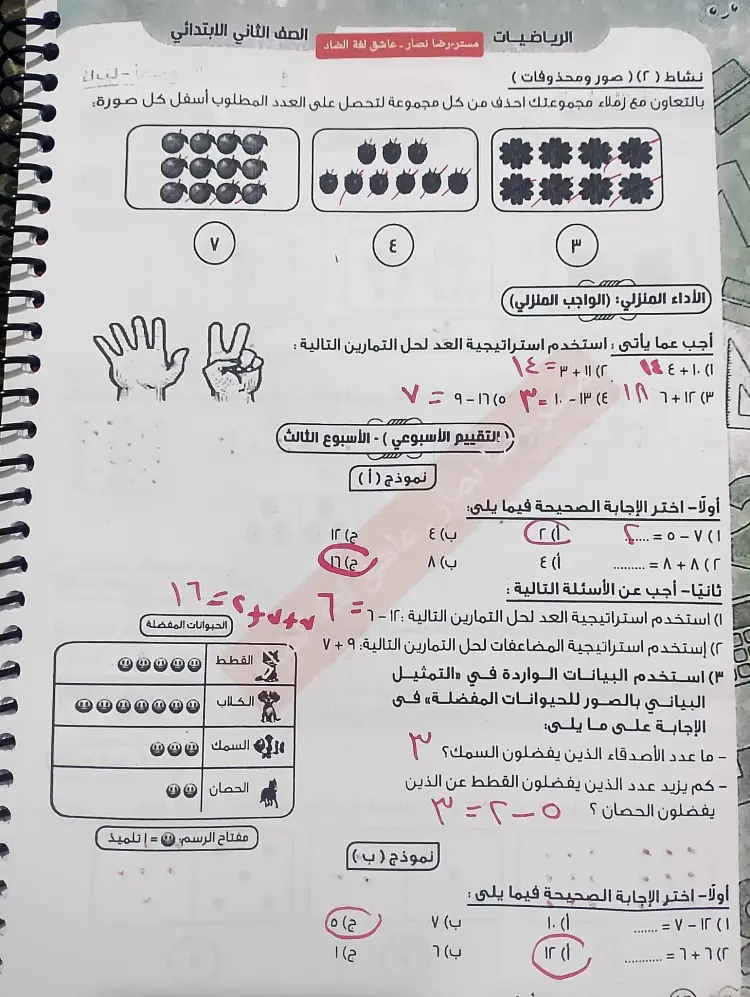 الرياضيات
مستر-رضا نصار - عاشق لغة الضاد
الصف الثاني الابتدائي
نشاط (٢) ( صور ومحذوفات )
بالتعاون مع زملاء مجموعتك احذف من كل مجموعة لتحصل على العدد المطلوب أسفل كل صورة:
٣ ٤ ٧
الأداء المنزلي: (الواجب المنزلي)
أجب عما يأتى : استخدم استراتيجية العد لحل التمارين التالية :
١) ١٠ + ٤ ١٤ ٢) ١١ + ٣ = ١٤
٣) ١٢ + ٦ ١٨ ٤) ١٣ - ١٠ = ٣ ٥) ١٦ - ٩ = ٧
( التقييم الأسبوعي ) - الأسبوع الثالث
نموذج ( أ )
أولًا- اختر الإجابة الصحيحة فيما يلي:
١) ٧ - ٥ = ....٢ أ) ٢ ب) ٤ ج) ١٢
٢) ٨ + ٨ = ......... أ) ٤ ب) ٨ ج) ١٦
ثانيًا- أجب عن الأسئلة التالية :
١) استخدم استراتيجية العد لحل التمارين التالية : ١٢ - ٦ = ٦
٢) إستخدم استراتيجية المضاعفات لحل التمارين التالية: ٩ + ٧
٧ + ٧ + ٢ = ١٦
٣) استخدم البيانات الواردة في «التمثيل
البياني بالصور للحيوانات المفضلة» فى
الإجابة على ما يلي:
- ما عدد الأصدقاء الذين يفضلون السمك؟ ٣
- كم يزيد عدد الذين يفضلون القطط عن الذين
يفضلون الحصان ؟ ٥ - ٢ = ٣
الحيوانات المفضلة
القطط
الكلاب
السمك
الحصان
مفتاح الرسم: = ١ تلميذ
نموذج ( ب )
أولًا- اختر الإجابة الصحيحة فيما يلى :
١) ١٢ - ٧ = ....... أ) ١٠ ب) ٧ ج) ٥
٢) ٦ + ٦ = .......... أ) ١٢ ب) ٦ ج) ١